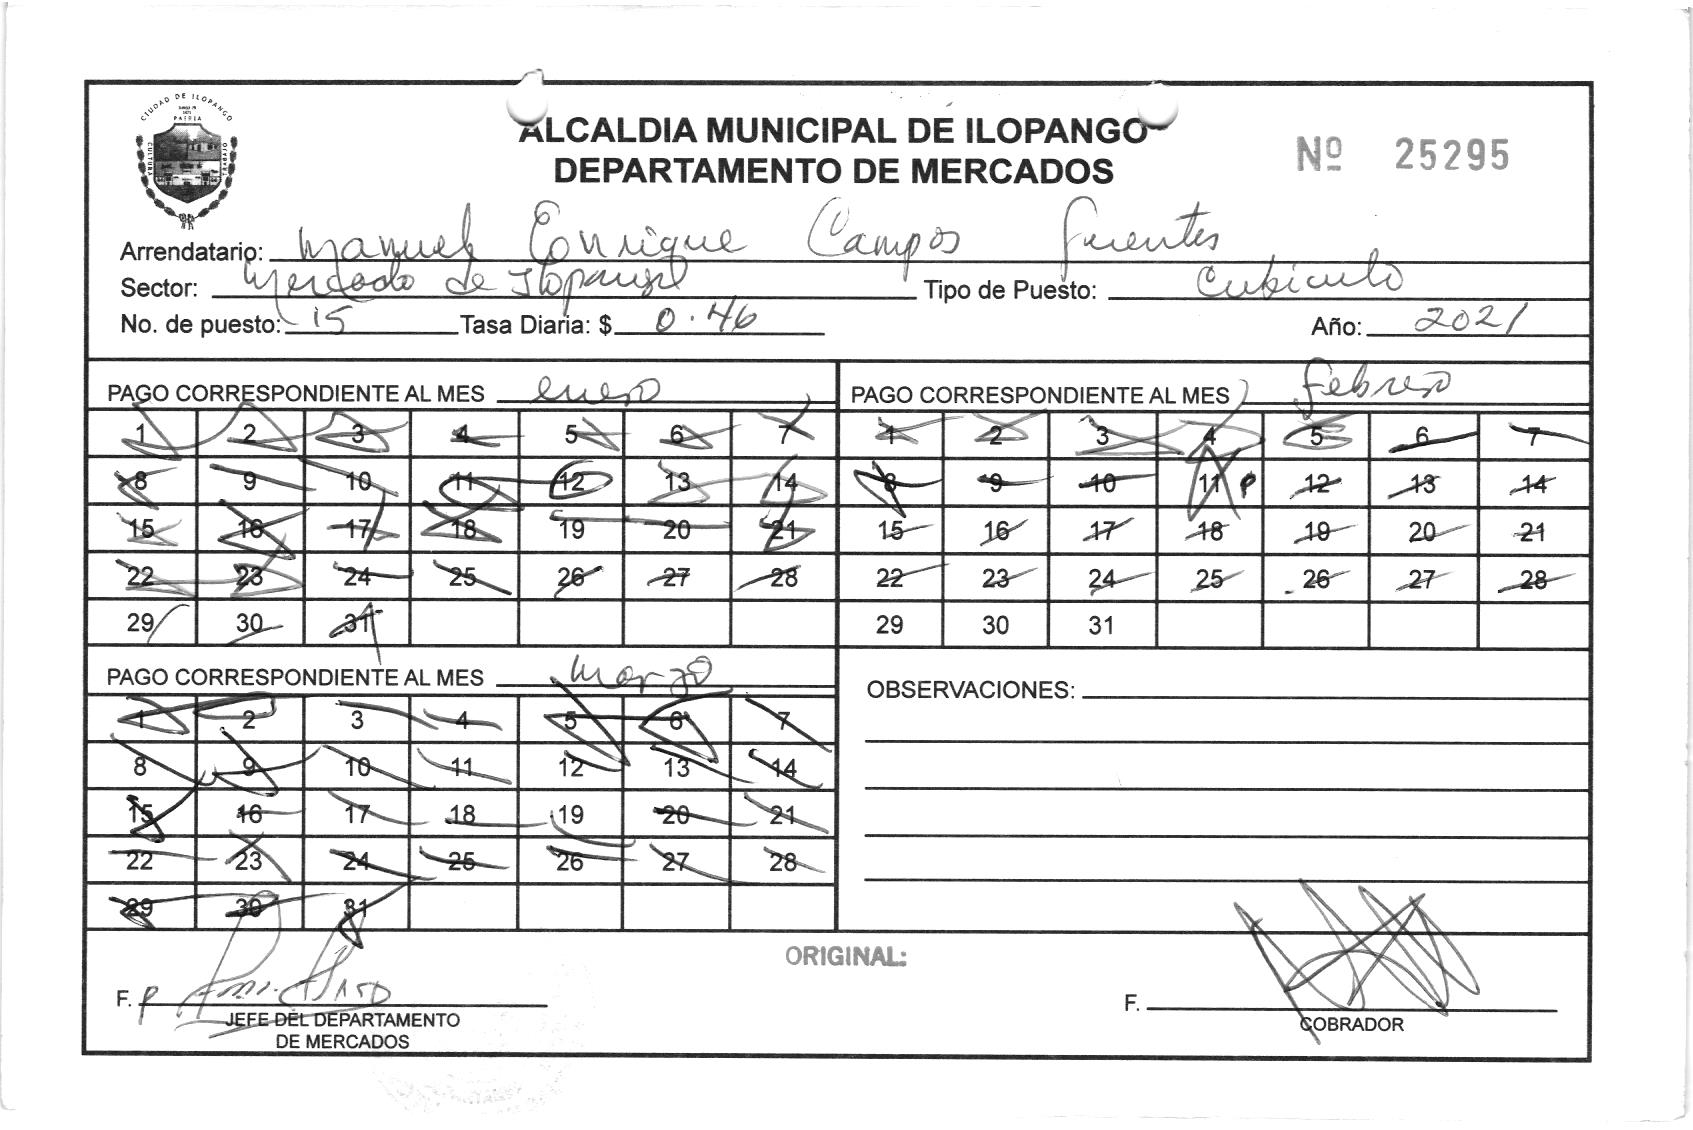 CIUDAD DE ILOPANGO
PATRIA
CULTURA
TRABAJO
ALCALDIA MUNICIPAL DE ILOPANGO
DEPARTAMENTO DE MERCADOS
Nº 25295
Arrendatario: Manuel Enrique Campos Fuentes
Sector: Mercado de Ilopango Tipo de Puesto: Cubiculo
No. de puesto: 15 Tasa Diaria: $ 0.46 Año: 2021
PAGO CORRESPONDIENTE AL MES enero
1 2 3 4 5 6 7
8 9 10 11 12 13 14
15 16 17 18 19 20 21
22 23 24 25 26 27 28
29 30 31
PAGO CORRESPONDIENTE AL MES febrero
1 2 3 4 5 6 7
8 9 10 11 P 12 13 14
15 16 17 18 19 20 21
22 23 24 25 26 27 28
29 30 31
PAGO CORRESPONDIENTE AL MES marzo
1 2 3 4 5 6 7
8 9 10 11 12 13 14
15 16 17 18 19 20 21
22 23 24 25 26 27 28
29 30 31
OBSERVACIONES:
ORIGINAL:
F. P
JEFE DEL DEPARTAMENTO
DE MERCADOS
F.
COBRADOR